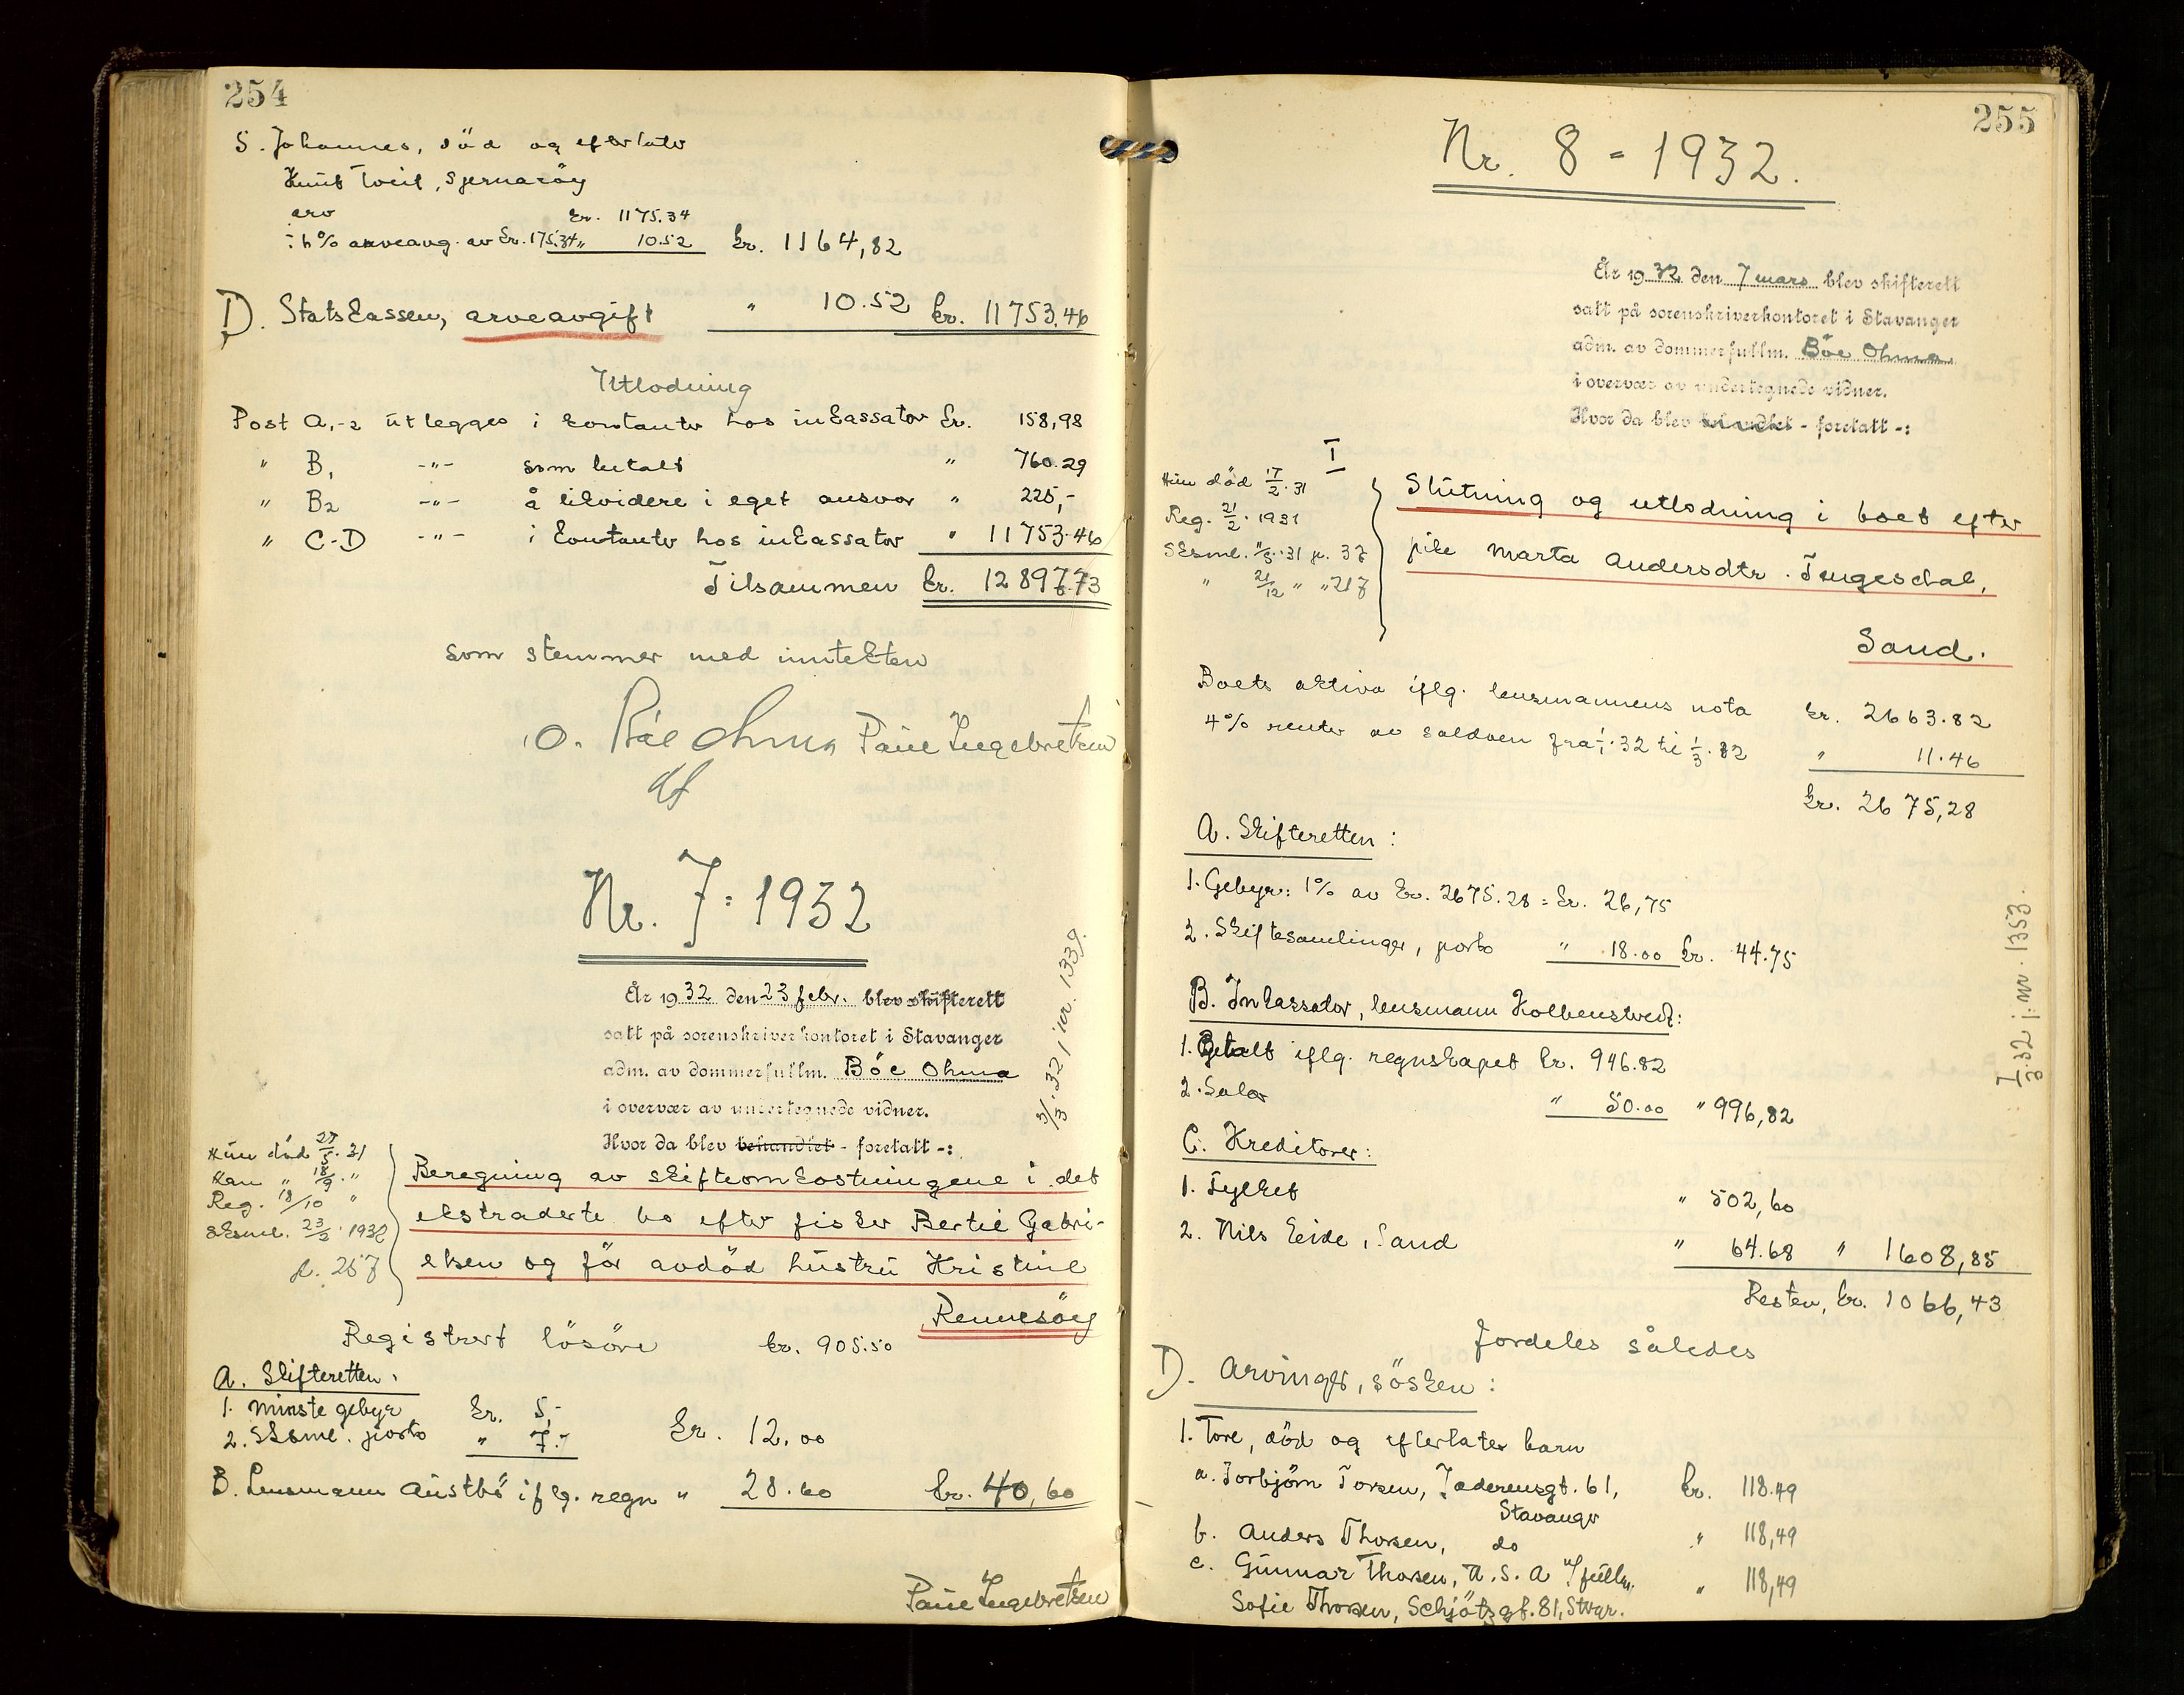 254
5. Johannes, död og efterlater
Knut Tveit, Sjernaröy
arv kr. 1175.34
÷ 6% arveavg. av kr. 175.34 " 10.52 kr. 1164,82
D. Statskassen, arveavgift " 10.52 kr. 11753.46
Utlodning
Post A,-2 utlegges i kontanter hos inkassator kr. 158,98
" B1 -"- som betalt " 760.29
" B2 -"- å likvidere i eget ansvar " 225,-
" C-D -"- i kontanter hos inkassator " 11753.46
Tilsammen kr. 12897.73
som stemmer med inntekten
O. Böe Ohma Paul Ingebretsen
df
Nr. 7 = 1932
År 1932 den 23 febr. blev skifterett
satt på sorenskriverkontoret i Stavanger
adm. av dommerfullm. Böe Ohma
i overvær av undertegnede vidner.
Hvor da blev behandlet - foretatt -:
3/3.32 j nr. 1339.
Hun död 27/5. 31
Han " 18/9. "
Reg. 18/10 "
Sksml. 23/2. 1932
p. 257
Beregning av skifteomkostningene i det
ekstraderte bo efter fisker Bertil Gabri-
elsen og för avdöd hustru Kristine
Rennesöy
Registrert lösöre kr. 905.50
A. Skifteretten.
1. Minste gebyr kr. 5,-
2. Sksml. porto " 7.- kr. 12.00
B. Lensmann Austbö iflg. regn " 28.60 kr. 40,60
Paul Ingebretsen
255
Nr. 8 = 1932.
År 1932 den 7 mars blev skifterett
satt på sorenskriverkontoret i Stavanger
adm. av dommerfullm. Böe Ohma
i overvær av undertegnede vidner.
Hvor da blev behandlet - foretatt -:
I
Hun död 17/2. 31
Reg. 21/2. 1931
Sksml. 11/5. 31 p. 37
" 21/12 " " 217
Slutning og utlodning i boet efter
pike Marta Andersdtr. Tengesdal,
Sand.
Boets aktiva iflg. lensmannens nota kr. 2663.82
4% renter av saldoen fra 1/1. 32 til 1/3. 32 " 11.46
kr. 2675,28
A. Skifteretten:
1. Gebyr: 1% av kr. 2675.28 = kr. 26,75
2. Skiftesamlinger, porto " 18.00 kr. 44.75
B. Inkassator, lensmann Kolbenstvedt:
1. Betalt iflg. regnskapet kr. 946.82
2. Salær " 50.00 " 996,82
C. Kreditorer:
1. Fylket " 502,60
2. Nils Eide, Sand " 64.68 " 1608,85
Resten, kr. 1066,43
fordeles således
D. Arvinger, sösken:
1. Tore, död og efterlater barn
a. Torbjörn Torsen, Jæderensgt. 61, kr. 118.49
Stavanger
b. Anders Thorsen, do " 118,49
c. Gunnar Thorsen, U.S.A v/fullm. " 118,49
Sofie Thorsen, Schjötzgt. 81, Stvgr.
7/3.32 j. nr. 1353.